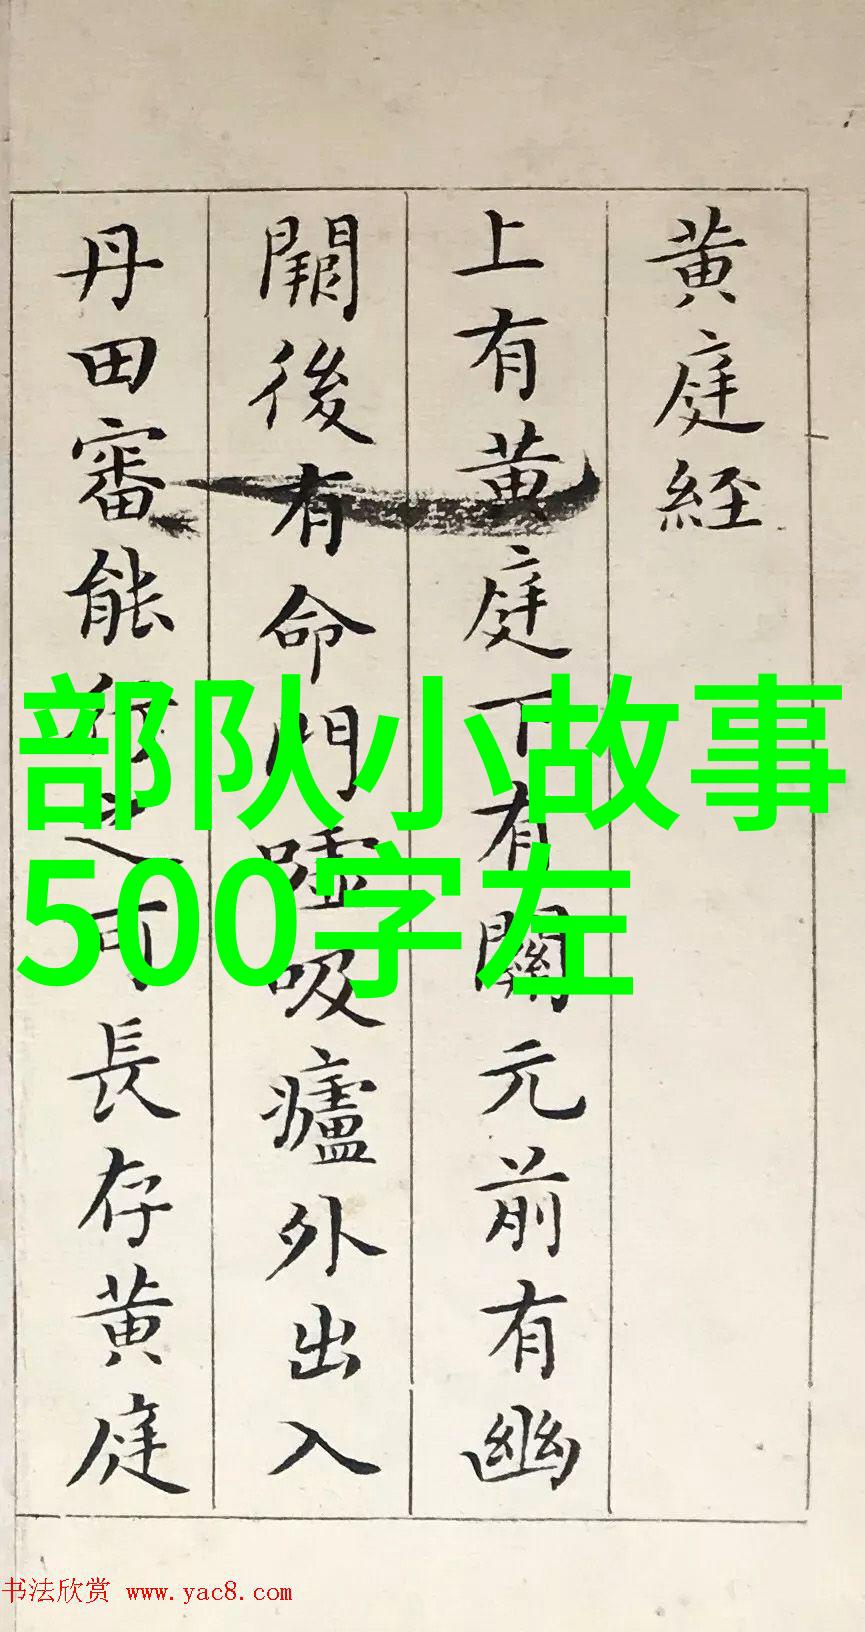 黄庭経
上有黄庭下有關元前有幽
闕後有命門嘘吸廬外出入
丹田審能行之可長存黄庭
部队小故事
500字左
书法欣赏 www.yac8.com